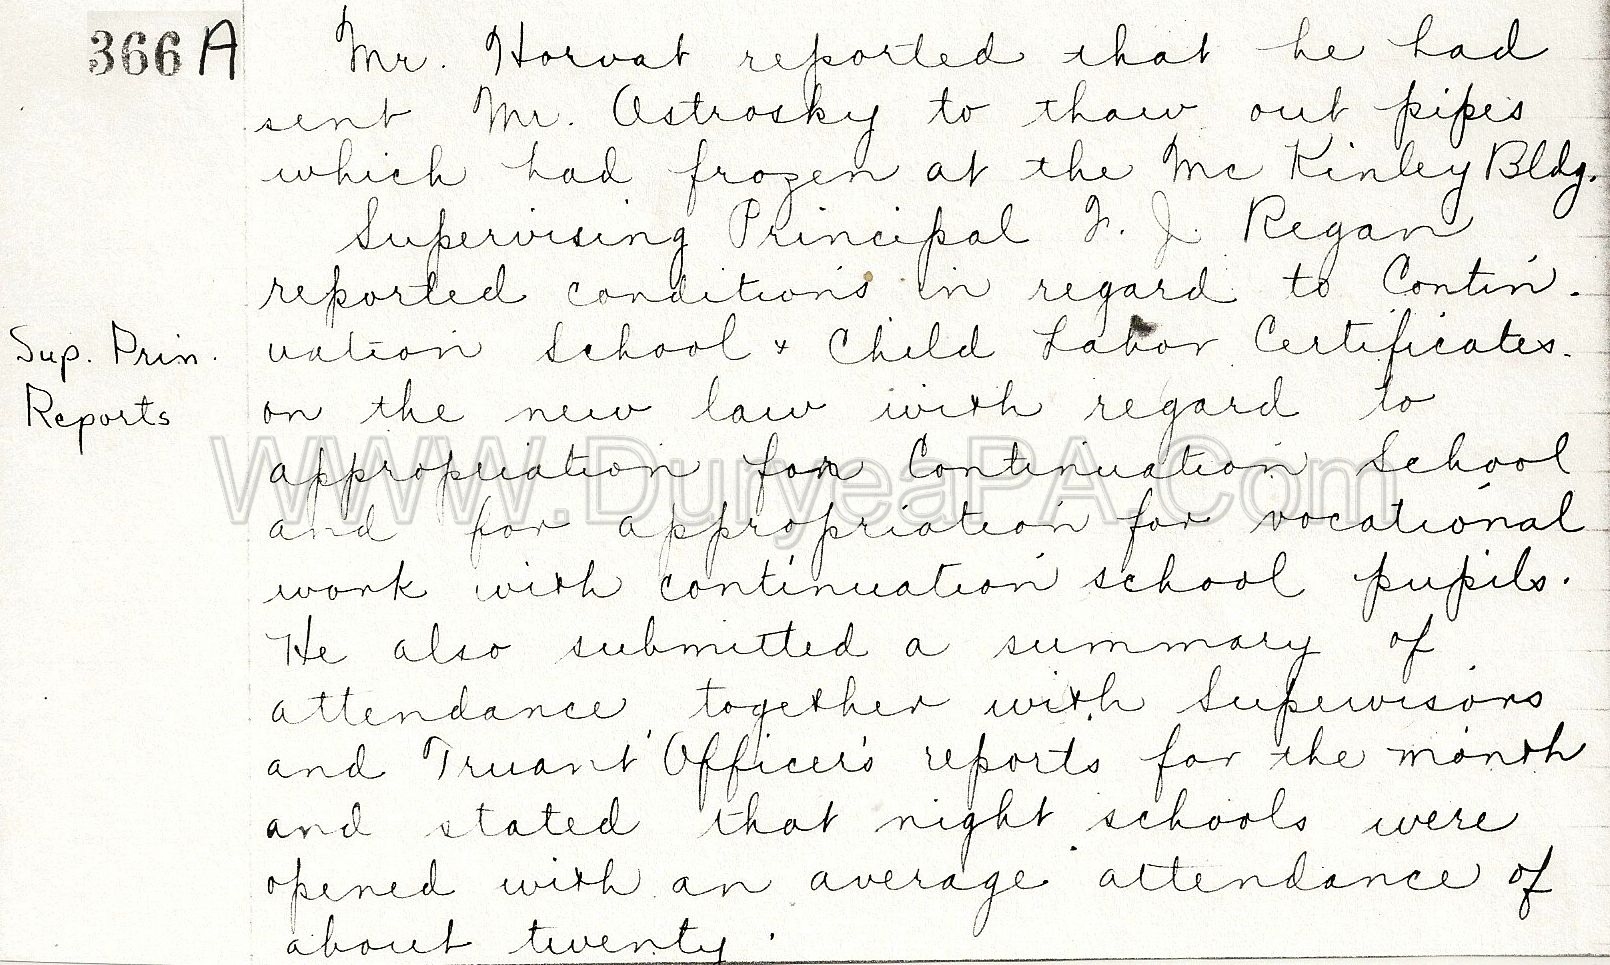 366 A
Mr. Horvat reported that he had
sent Mr. Ostrosky to thaw out pipes
which had frozen at the Mc Kinley Bldg.
Supervising Principal F. J. Regan
reported conditions in regard to Contin.
Sup. Prin.
Reports
uation School & Child Labor Certificates.
on the new law with regard to
appropriation for Continuation School
and for appropriation for vocational
work with continuation school pupils.
He also submitted a summary of
attendance together with Supervisors
and Truant Officer's reports for the month
and stated that night schools were
opened with an average attendance of
about twenty.
WWW.DuryeaPA.Com